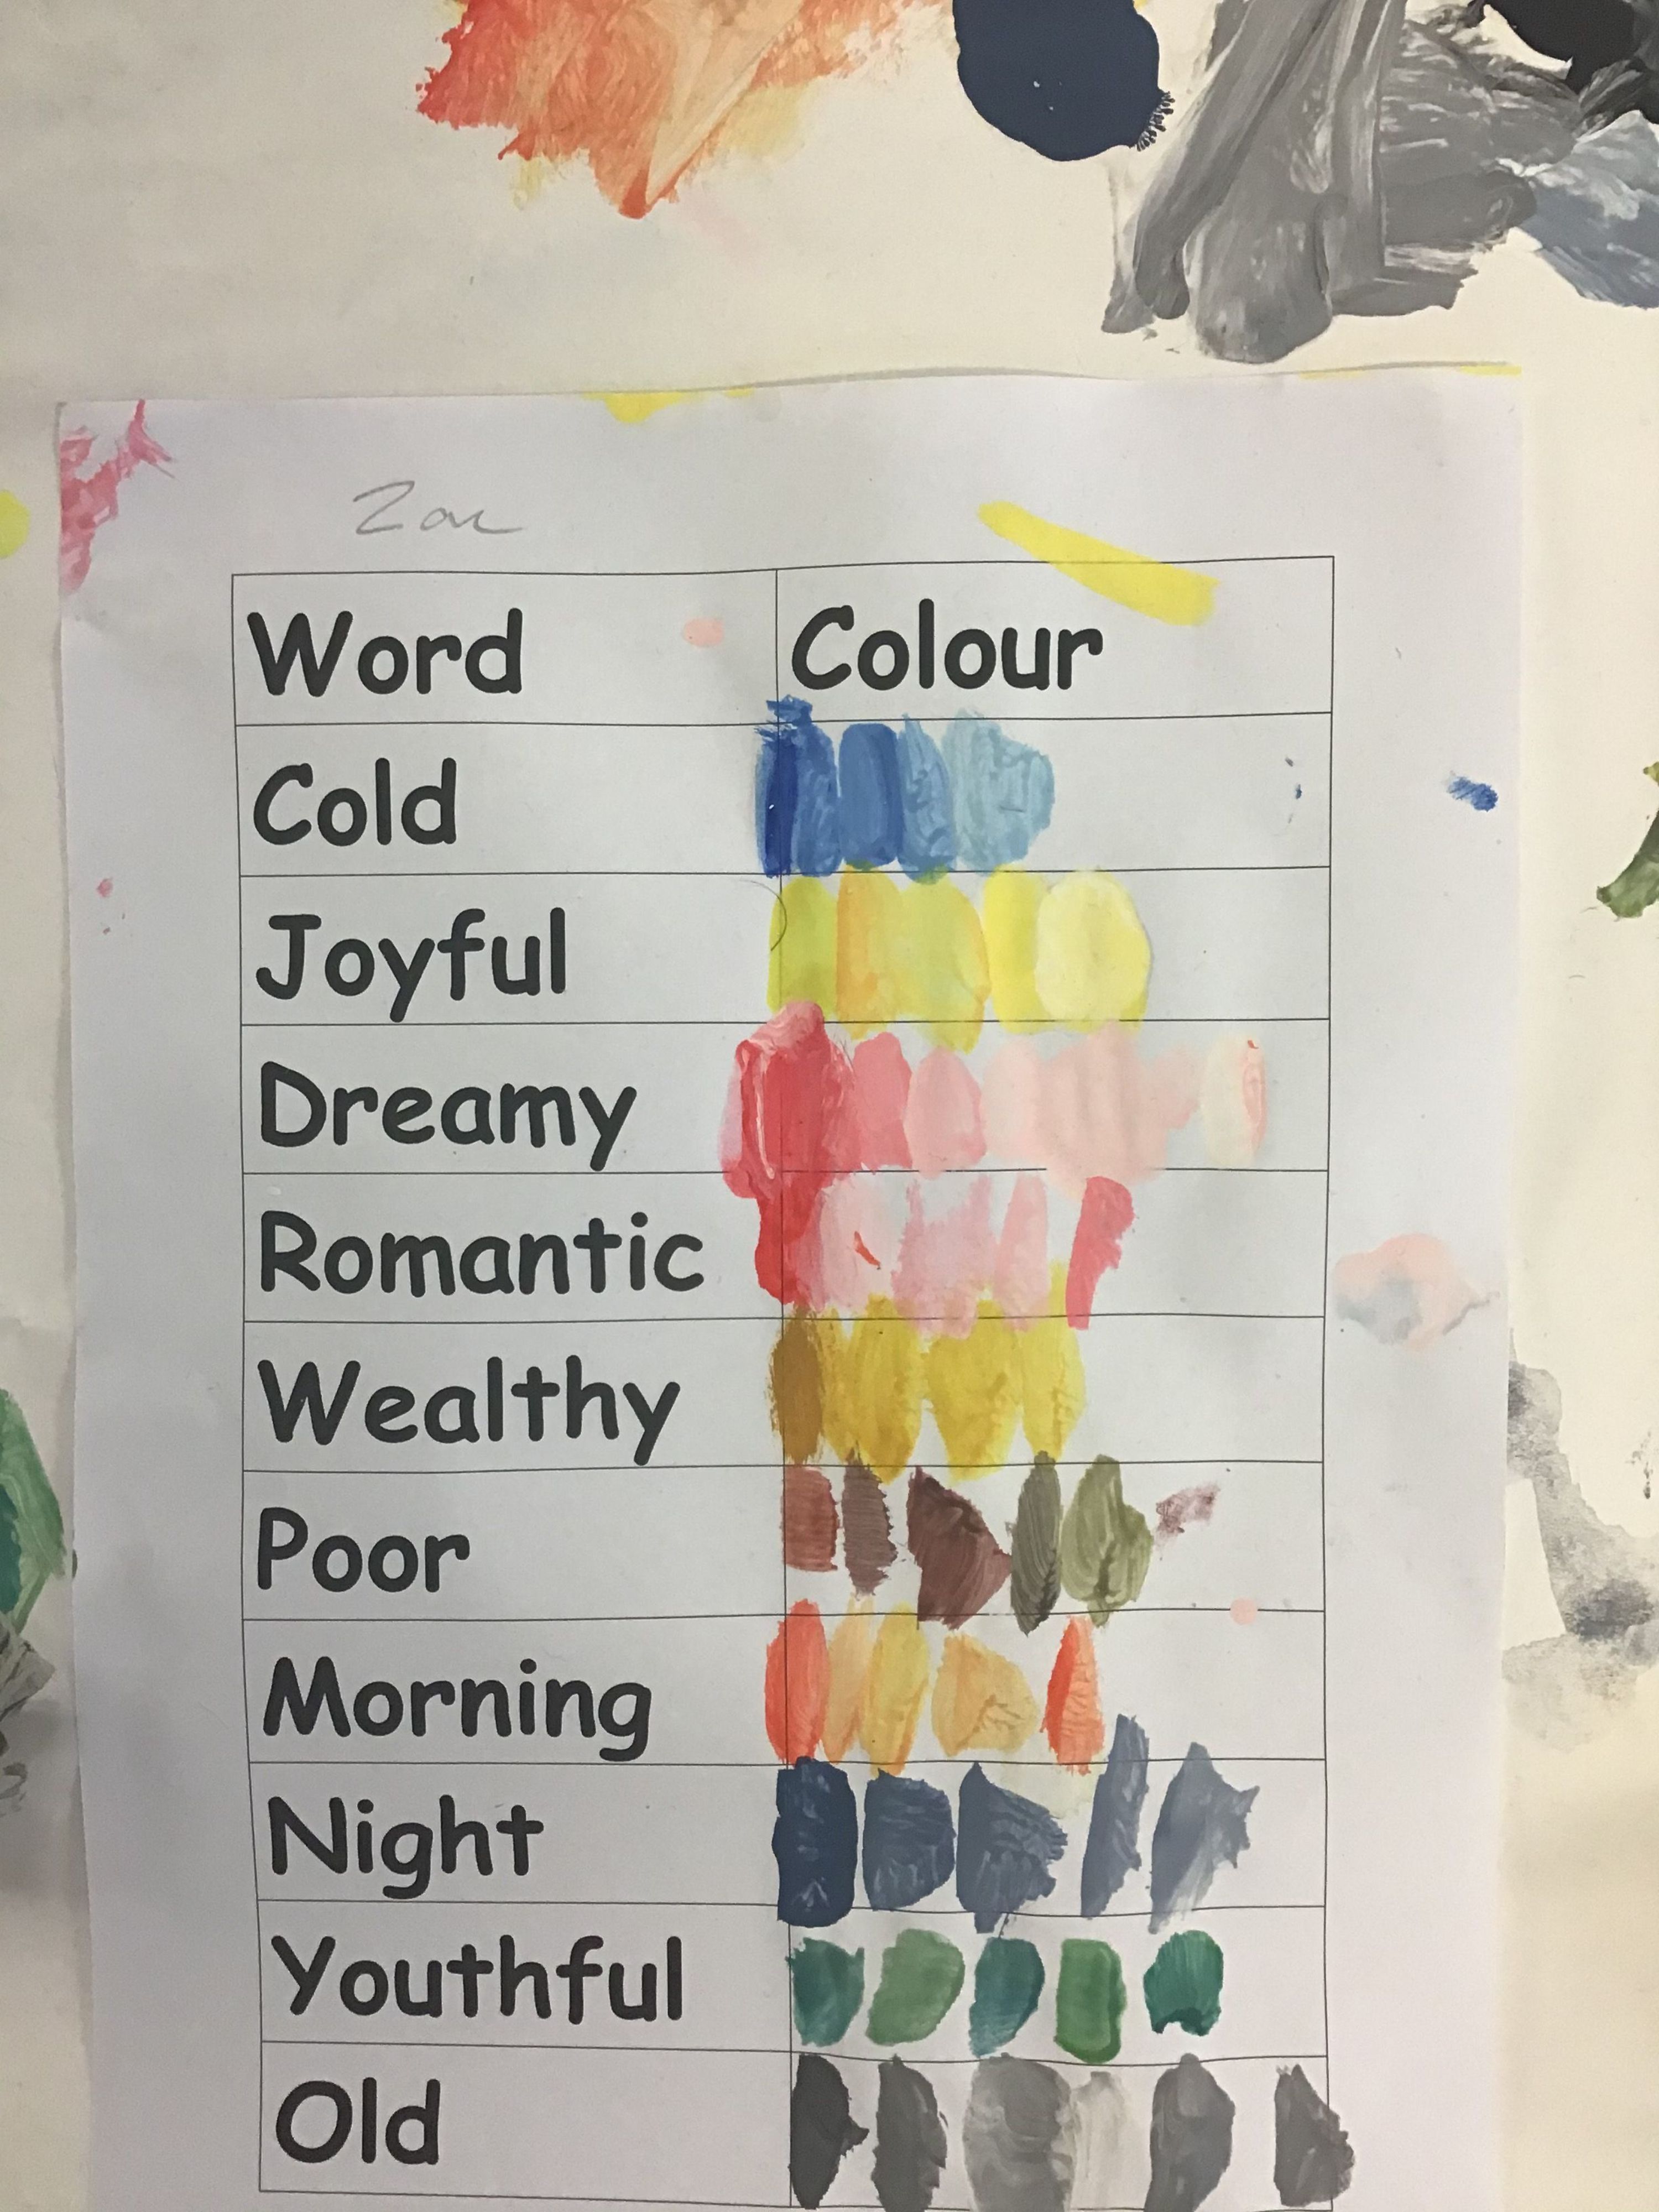 Zac
Word Colour
Cold
Joyful
Dreamy
Romantic
Wealthy
Poor
Morning
Night
Youthful
Old